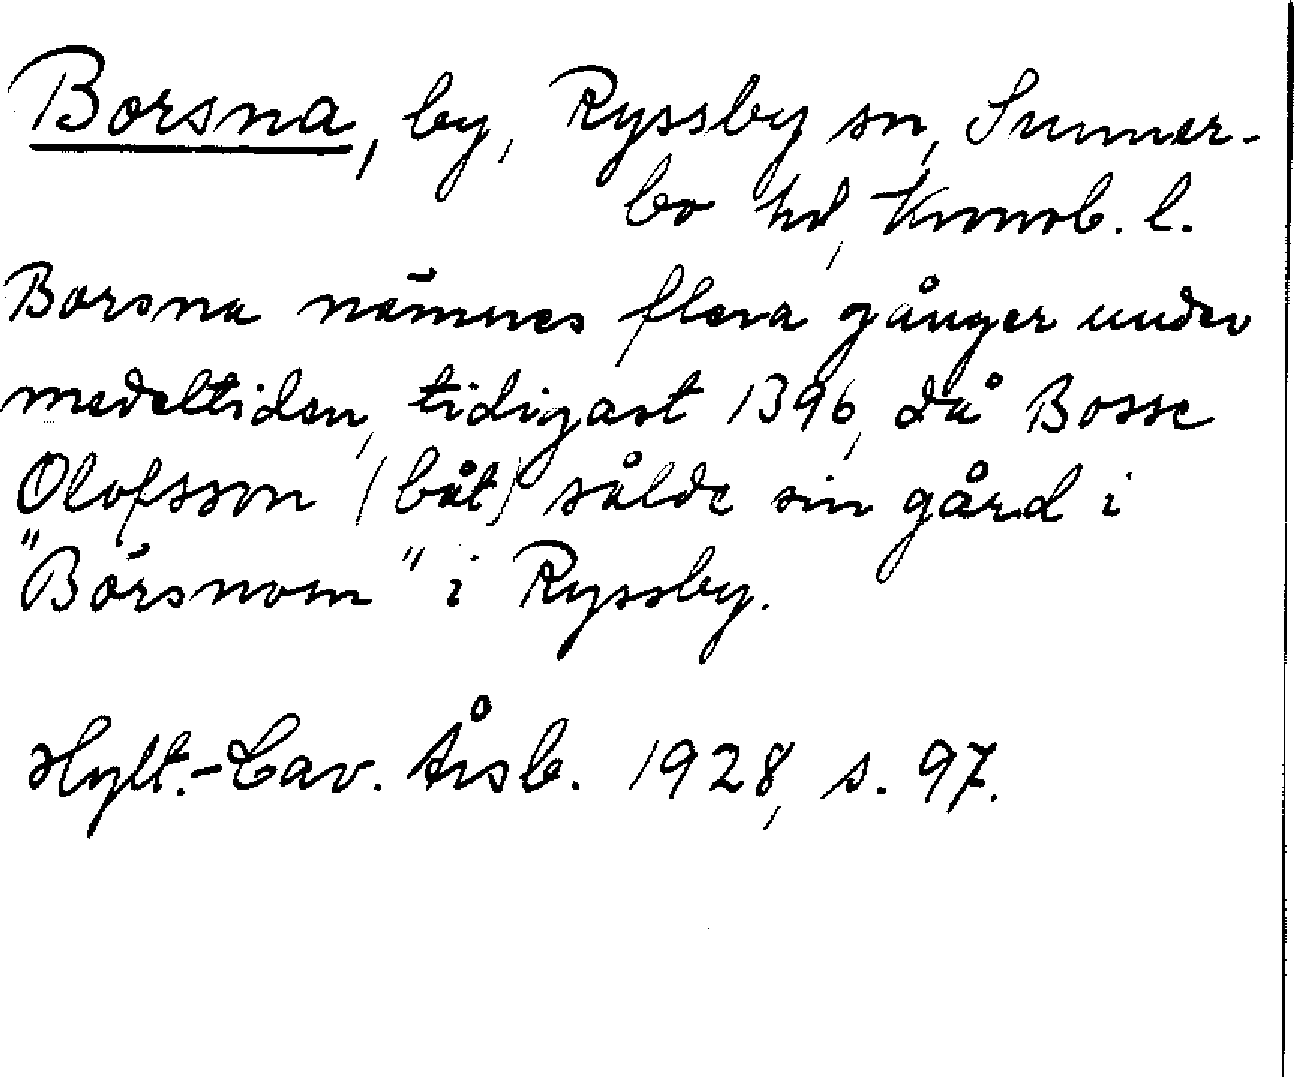 Borsna, by, Ryssby sn, Sunner-
bo hd, Kronob. l.
Borsna nämnes flera gånger under
medeltiden, tidigast 1396, då Bosse
Olofsson (båt) sålde sin gård i
"Börsnom" i Ryssby.
Hylt.-Cav. Årsb. 1928, s. 97.